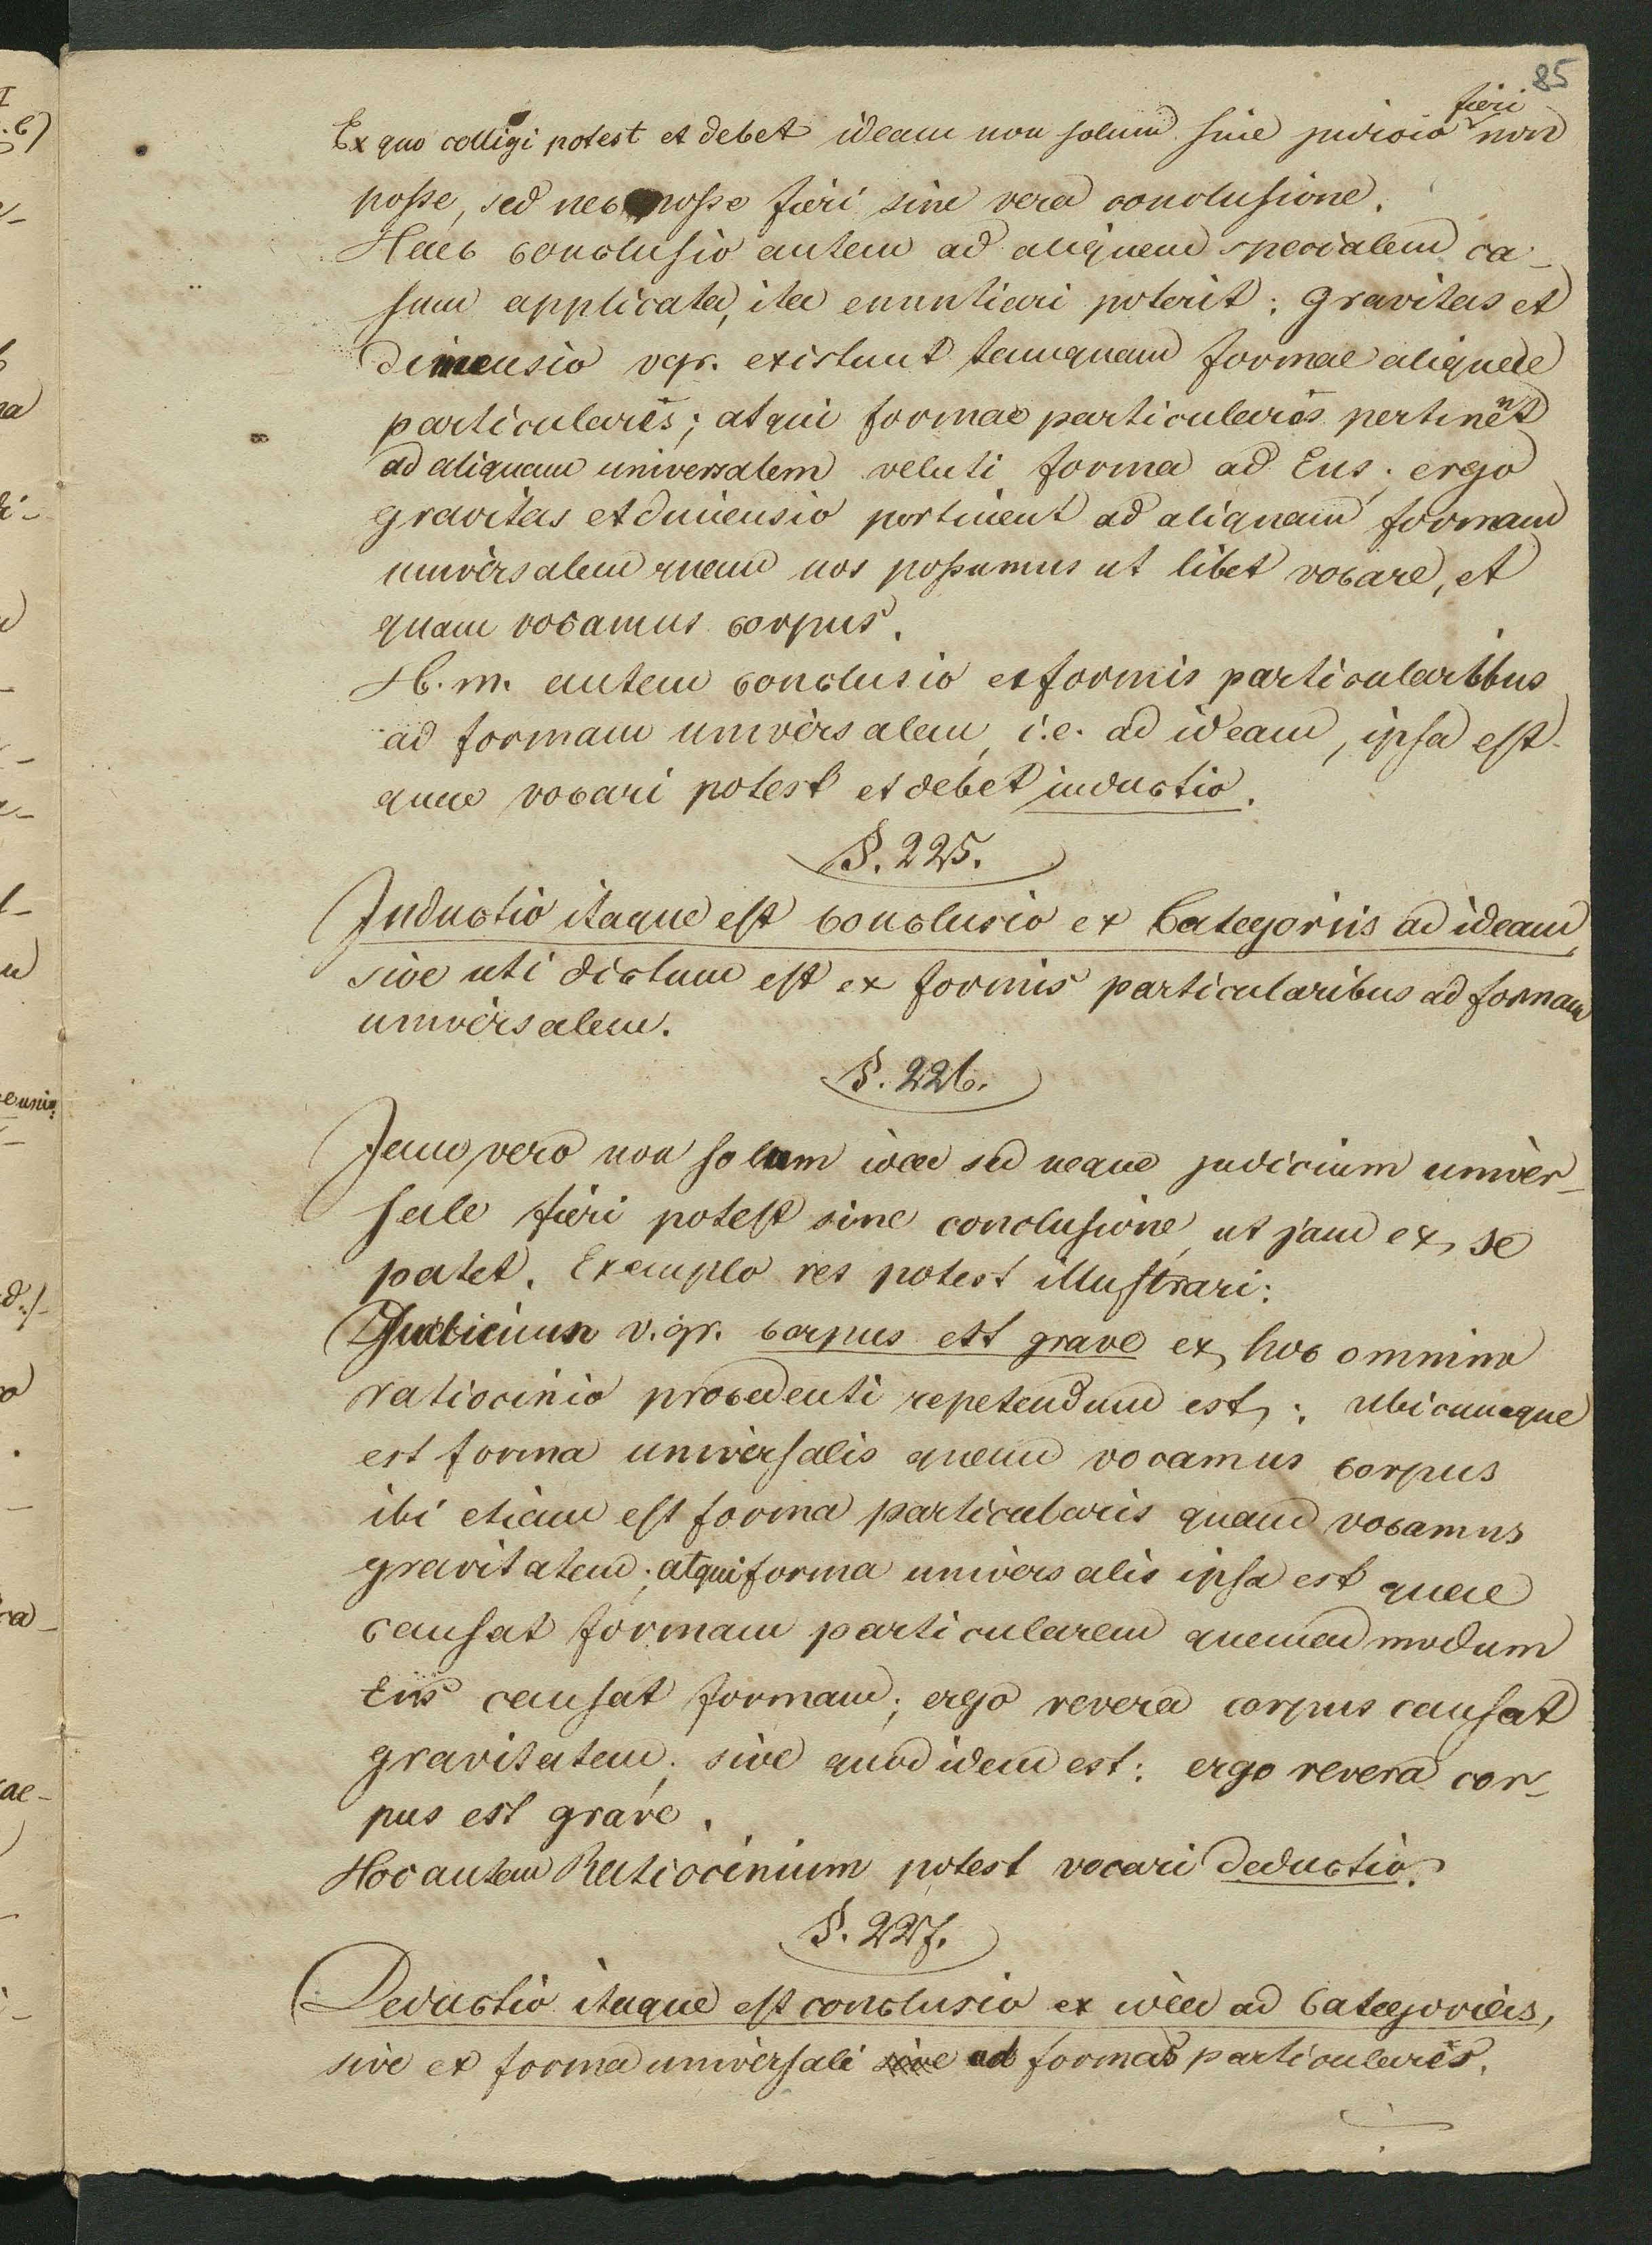 85
Ex quo colligi potest et debet ideam non solum sine judicio fieri non
posse, sed nec posse fieri sine vera conclusione.
Haec conclusio autem ad aliquem specialem ca-
sum applicata, ita enuntiari poterit: gravitas et
dimensio vgr. existunt tamquam formae aliquae
particulares; atqui formae particulares pertinent
ad aliquam universalem veluti forma ad Ens; ergo
gravitas et dimensio pertinent ad aliquam formam
universalem quam nos possumus ut libet vocare, et
quam vocamus corpus.
H. m. autem conclusio ex formis particularibus
ad formam universalem, i.e. ad ideam, ipsa est
quae vocari potest et debet inductio.
§. 225.
Inductio itaque est conclusio ex Categoriis ad ideam,
sive uti dictum est ex formis particularibus ad formam
universalem.
§. 226.
Immo vero non solum idea sed neque judicium univer-
sale fieri potest sine conclusione, ut jam ex se
patet. Exemplo res potest illustrari:
Judicium v.gr. corpus est grave ex hoc omnino
ratiocinio procedenti repetendum est: ubicunque
est forma universalis quam vocamus corpus
ibi etiam est forma particularis quam vocamus
gravitatem; atqui forma universalis ipsa est quae
causat formam particularem quemadmodum
Ens causat formam; ergo revera corpus causat
gravitatem; sive quod idem est: ergo revera cor-
pus est grave.
Hoc autem Ratiocinium potest vocari deductio.
§. 227.
Deductio itaque est conclusio ex idea ad Categorias,
sive ex forma universali sive ad formas particulares.